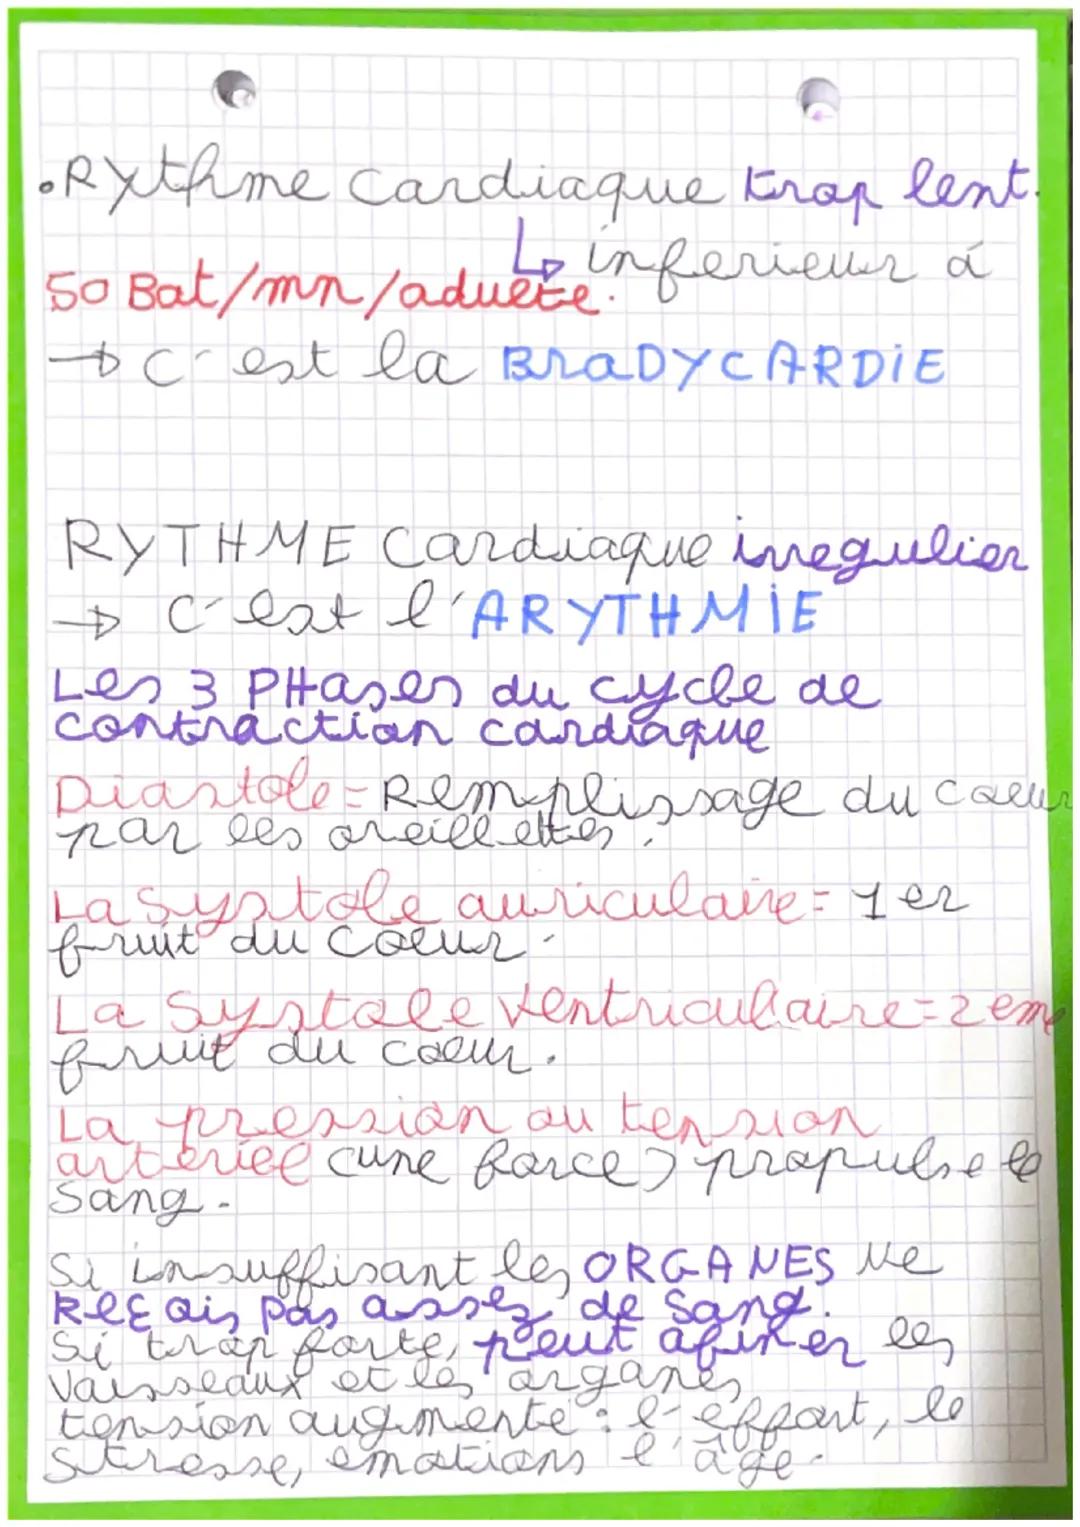 • Rythme cardiaque trop lent.
↳ inferieur á
50 Bat/mn/adulte.
→ c'est la BRADYCARDIE
RYTHME cardiaque irregulier
→ c'est l'ARYTHMIE
Les 3 PHases du cycle de
contraction cardiaque
Diastole = Remplissage du coeur
par les oreillettes.
La Systole auriculaire = 1er
bruit du coeur.
La Systole ventriculaire = 2eme
bruit du coeur.
La pression ou tension
arteriel (une force) propulse le
sang.
Si insuffisant les ORGANES Ne
Reçois pas assez de Sang.
Si trop forte, peut abimer les
vaisseaux et les organes
tension augmente : l'effort, le
stresse, emotions l'âge.